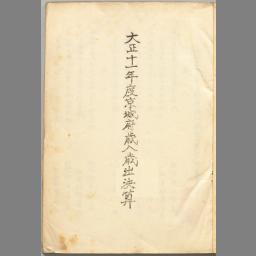 大正十一年度京城府歳入歳出決算